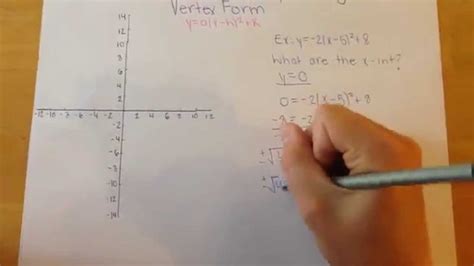 Vertex Form
y=a(x-h)²+k
Ex: y=-2(x-5)²+8
What are the x-int?
y=0
0=-2(x-5)²+8
-8 = -2
14
12
10
8
6
4
2
-12 -10 -8 -6 -4 -2 2 4 6 8 10 12
-2
-4
-6
-8
-10
-12
-14